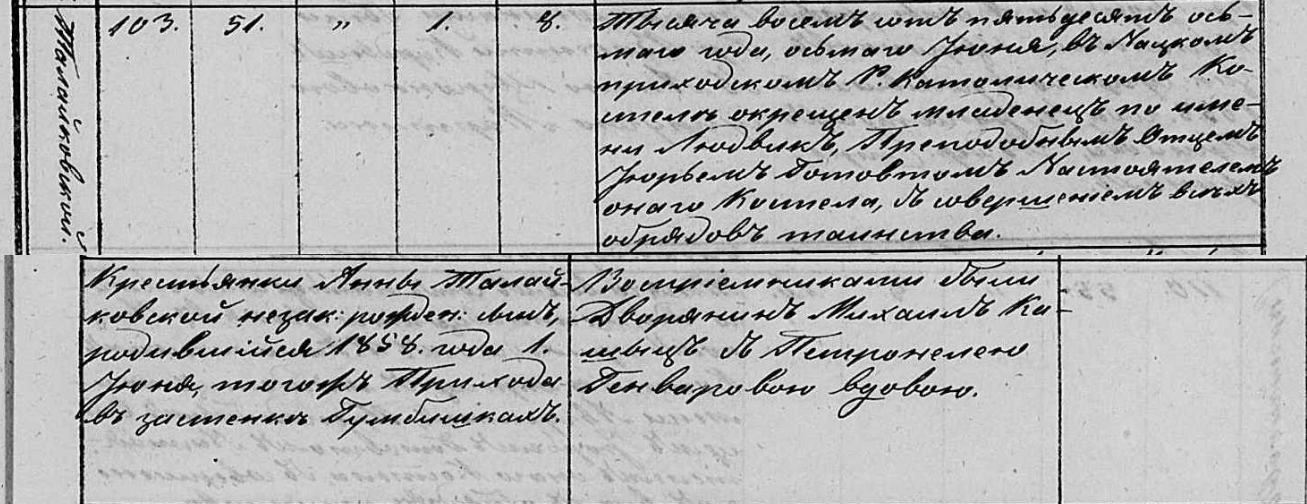 Талайковской.
103. 51. „ 1. 8.
Тысяча восемъ сотъ пятьдесятъ ось-
маго года, осьмаго Іюня, въ Нацкомъ
приходскомъ Р. Католическомъ Ко-
стелѣ окрещенъ младенецъ по име-
ни Людвикъ, Преподобнымъ Отцемъ
Юрьемъ Ботовтомъ Настоятелемъ
онаго Костела, съ совершеніемъ всѣхъ
обрядовъ таинства.
Крестьянки Анны Талай-
ковской незак: рожден: сынъ,
родившійся 1858. года 1.
Іюня, тогожъ Прихода
въ застенкѣ Гумбишкахъ.
Воспріемниками были
Дворянинъ Михаилъ Ка-
шыцъ съ Петронелею
Генваровою вдовою.